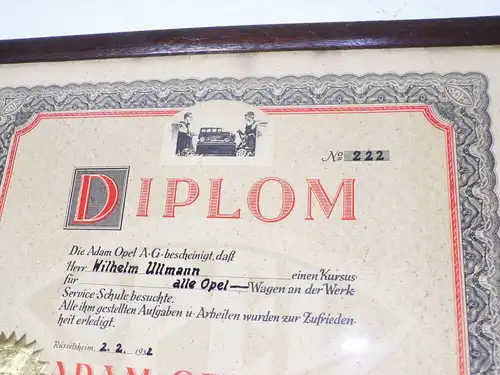 Nº 222
DIPLOM
Die Adam Opel A-G-bescheinigt, daß
Herr Wilhelm Ullmann einen Kursus
für alle Opel-Wagen an der Werk-
Service Schule besuchte.
Alle ihm gestellten Aufgaben u. Arbeiten wurden zur Zufrieden-
heit erledigt.
Rüsselsheim 2. 2. 1932
ADAM